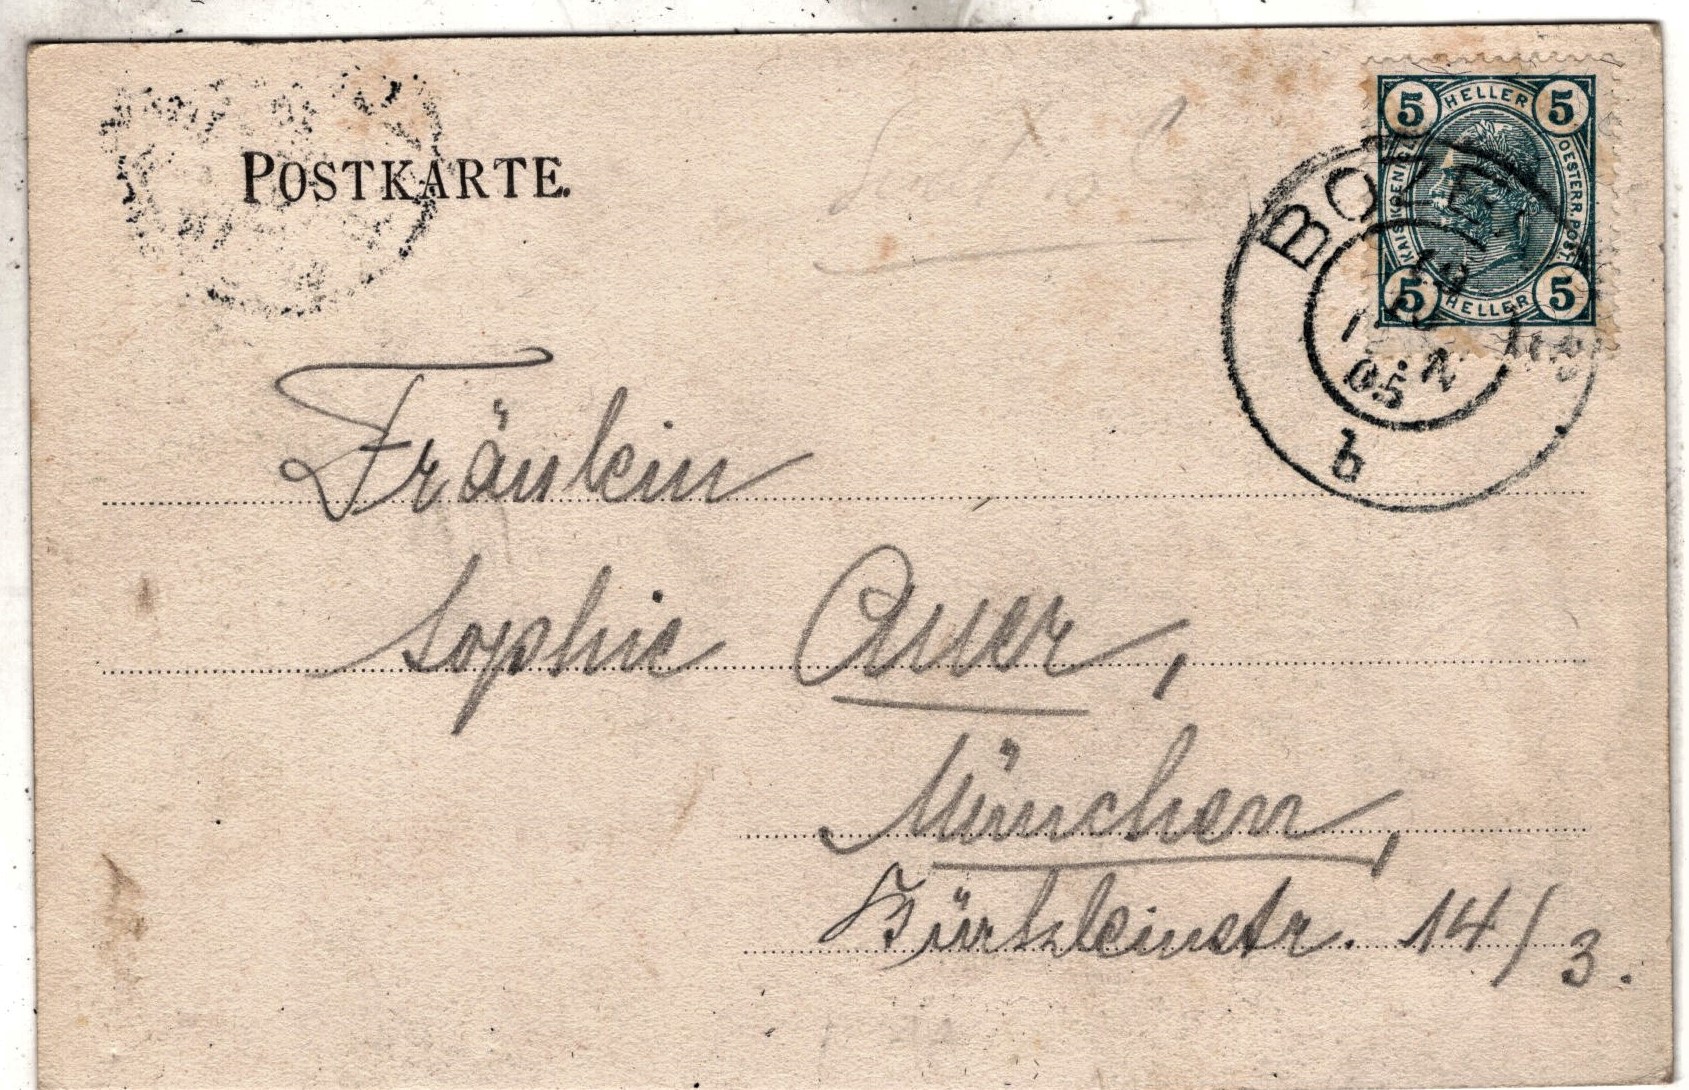 POSTKARTE.
5 HELLER 5
KAIS. KOENIGL. OESTERR. POST.
5 HELLER 5
BOZEN
19
05
b
Fräulein
Sophie Auer,
München,
Bürkleinstr. 14/3.